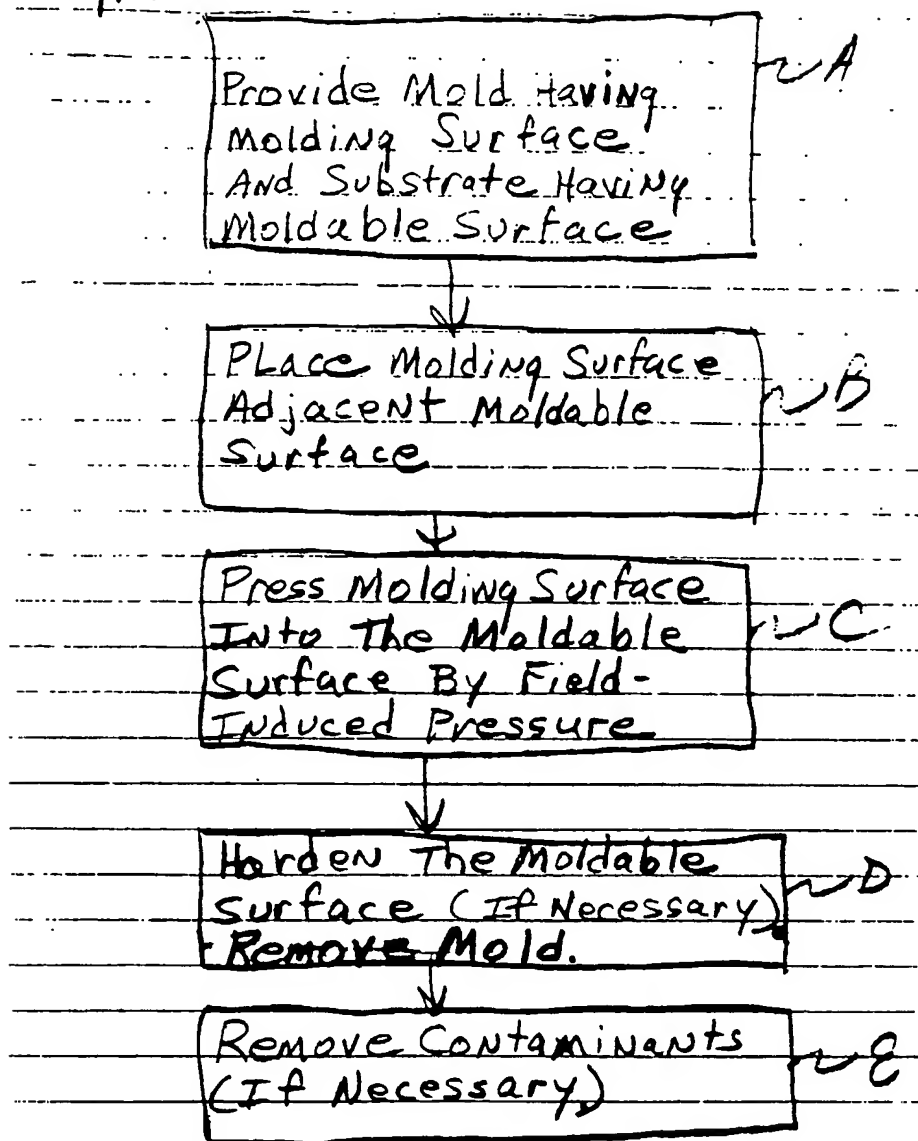 Provide Mold Having A
Molding Surface
And Substrate Having
Moldable Surface
Place Molding Surface B
Adjacent Moldable
Surface
Press Molding Surface
Into The Moldable C
Surface By Field-
Induced Pressure
Harden The Moldable D
Surface (If Necessary),
Remove Mold.
Remove Contaminants E
(If Necessary)